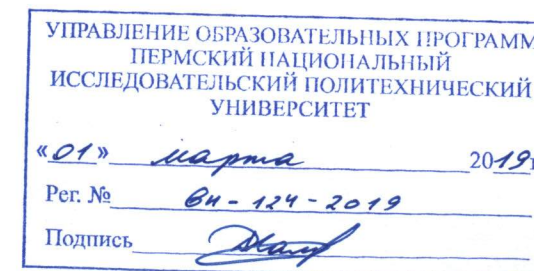 УПРАВЛЕНИЕ ОБРАЗОВАТЕЛЬНЫХ ПРОГРАММ
ПЕРМСКИЙ НАЦИОНАЛЬНЫЙ
ИССЛЕДОВАТЕЛЬСКИЙ ПОЛИТЕХНИЧЕСКИЙ
УНИВЕРСИТЕТ
«01» марта 2019г
Рег. № вн - 124 - 2019
Подпись